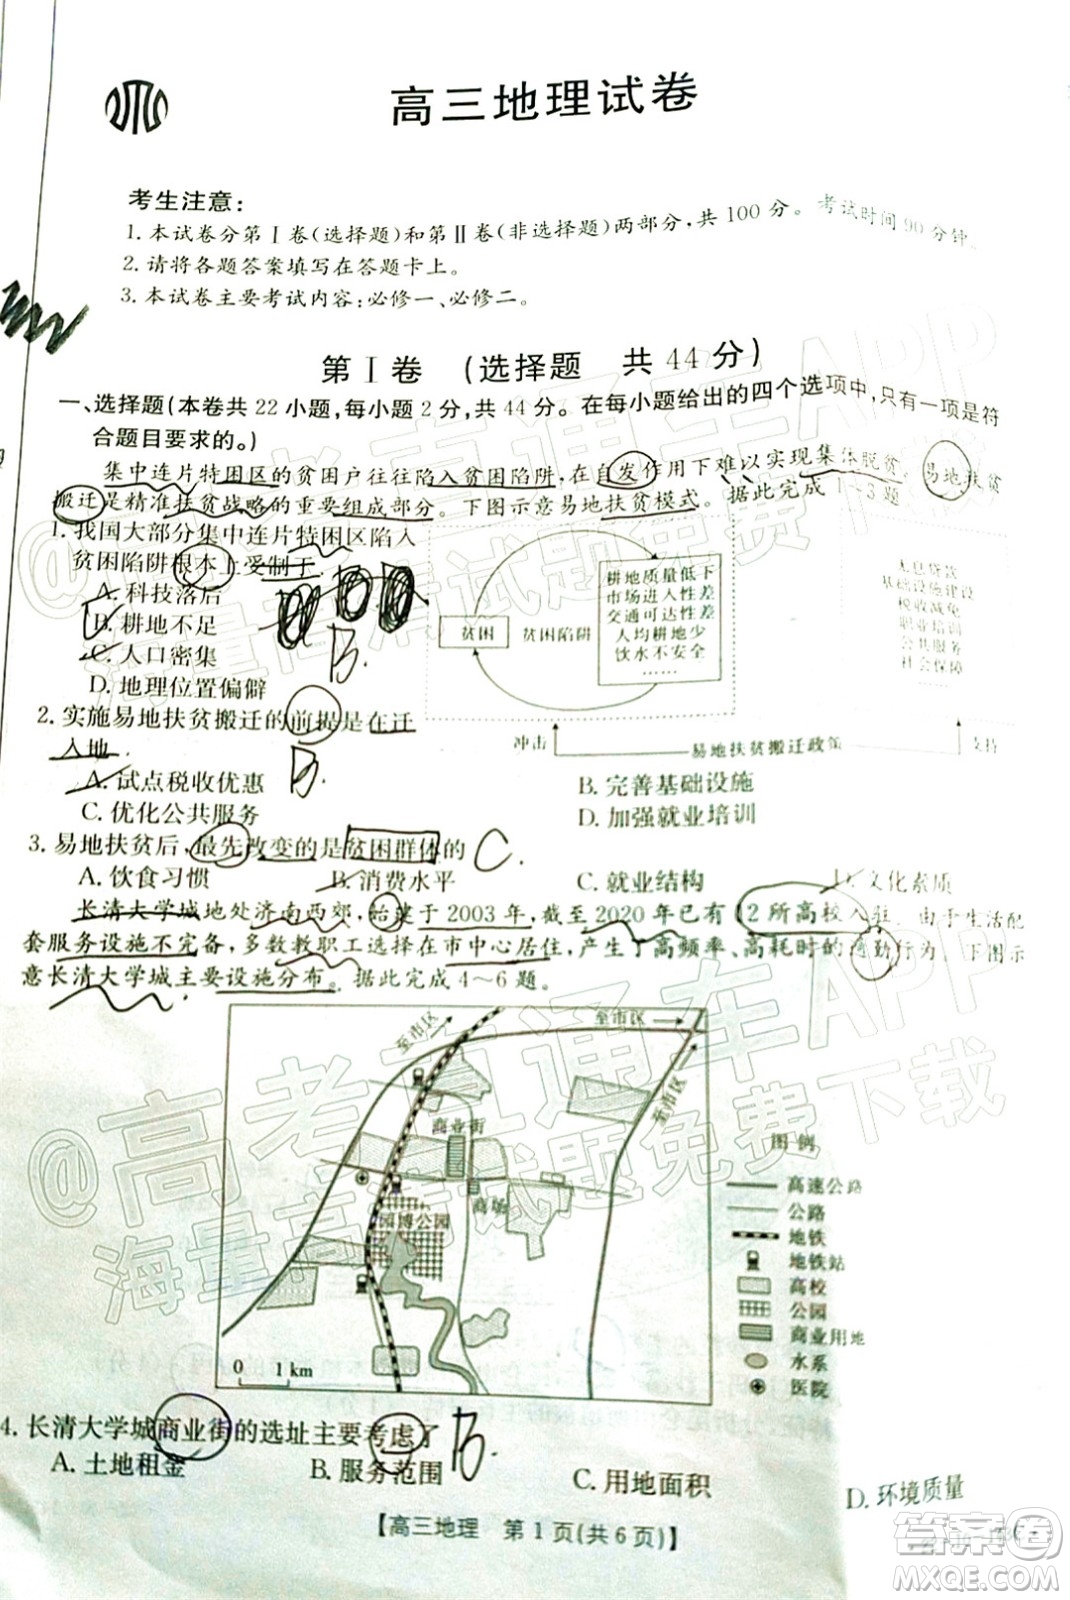 高三地理试卷
考生注意:
1.本试卷分第Ⅰ卷(选择题)和第Ⅱ卷(非选择题)两部分,共100分。考试时间90分钟。
2.请将各题答案填写在答题卡上。
3.本试卷主要考试内容:必修一、必修二。
第Ⅰ卷 (选择题 共44分)
一、选择题(本卷共22小题,每小题2分,共44分。在每小题给出的四个选项中,只有一项是符
合题目要求的。)
集中连片特困区的贫困户往往陷入贫困陷阱,在自发作用下难以实现集体脱贫。易地扶贫
搬迁是精准扶贫战略的重要组成部分。下图示意易地扶贫模式。据此完成1~3题
1.我国大部分集中连片特困区陷入
贫困陷阱根本上受制于
A.科技落后
B.耕地不足
C.人口密集
D.地理位置偏僻
B
贫困
贫困陷阱
耕地质量低下
市场进入性差
交通可达性差
人均耕地少
饮水不安全
无息贷款
基础设施建设
税收减免
职业培训
公共服务
社会保障
冲击
易地扶贫搬迁政策
支持
2.实施易地扶贫搬迁的前提是在迁
入地
B
A.试点税收优惠
B.完善基础设施
C.优化公共服务
D.加强就业培训
3.易地扶贫后,最先改变的是贫困群体的
C
A.饮食习惯
B.消费水平
C.就业结构
D.文化素质
长清大学城地处济南西郊,始建于2003年,截至2020年已有12所高校入驻。由于生活配
套服务设施不完备,多数教职工选择在市中心居住,产生了高频率、高耗时的通勤行为。下图示
意长清大学城主要设施分布。据此完成4~6题。
至市区
至市区
至市区
商业街
商场
园博公园
0 1 km
图例
高速公路
公路
地铁
地铁站
高校
公园
商业用地
水系
医院
4.长清大学城商业街的选址主要考虑了
B
A.土地租金
B.服务范围
C.用地面积
D.环境质量
【高三地理 第1页(共6页)】
@高考直通车APP
海量高考试题免费下载
@高考直通车APP
海量高考试题免费下载
答案圈
MXQE.COM